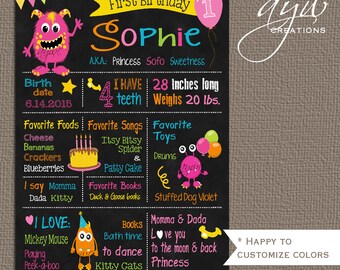 First Birthday
1
Sophie
A.K.A: Princess Sofo Sweetness
dyw
CREATIONS
Birth
date
6.14.2015
I HAVE
4
teeth
28 Inches long
Weighs 20 lbs.
Favorite Foods
Cheese
Bananas
Crackers
Blueberries
Favorite Songs
Itsy Bitsy
Spider
&
Patty Cake
Favorite
Toys
Drums
Stuffed Dog Violet
I say Momma
Dada Kitty
Favorite Books
Duck & Goose books
I LOVE:
Mickey Mouse
Playing
Peek-a-boo
Books
Bath time
to dance
Kitty Cats
Momma & Dada
Love you
to the moon & back
Princess
* HAPPY TO
CUSTOMIZE COLORS